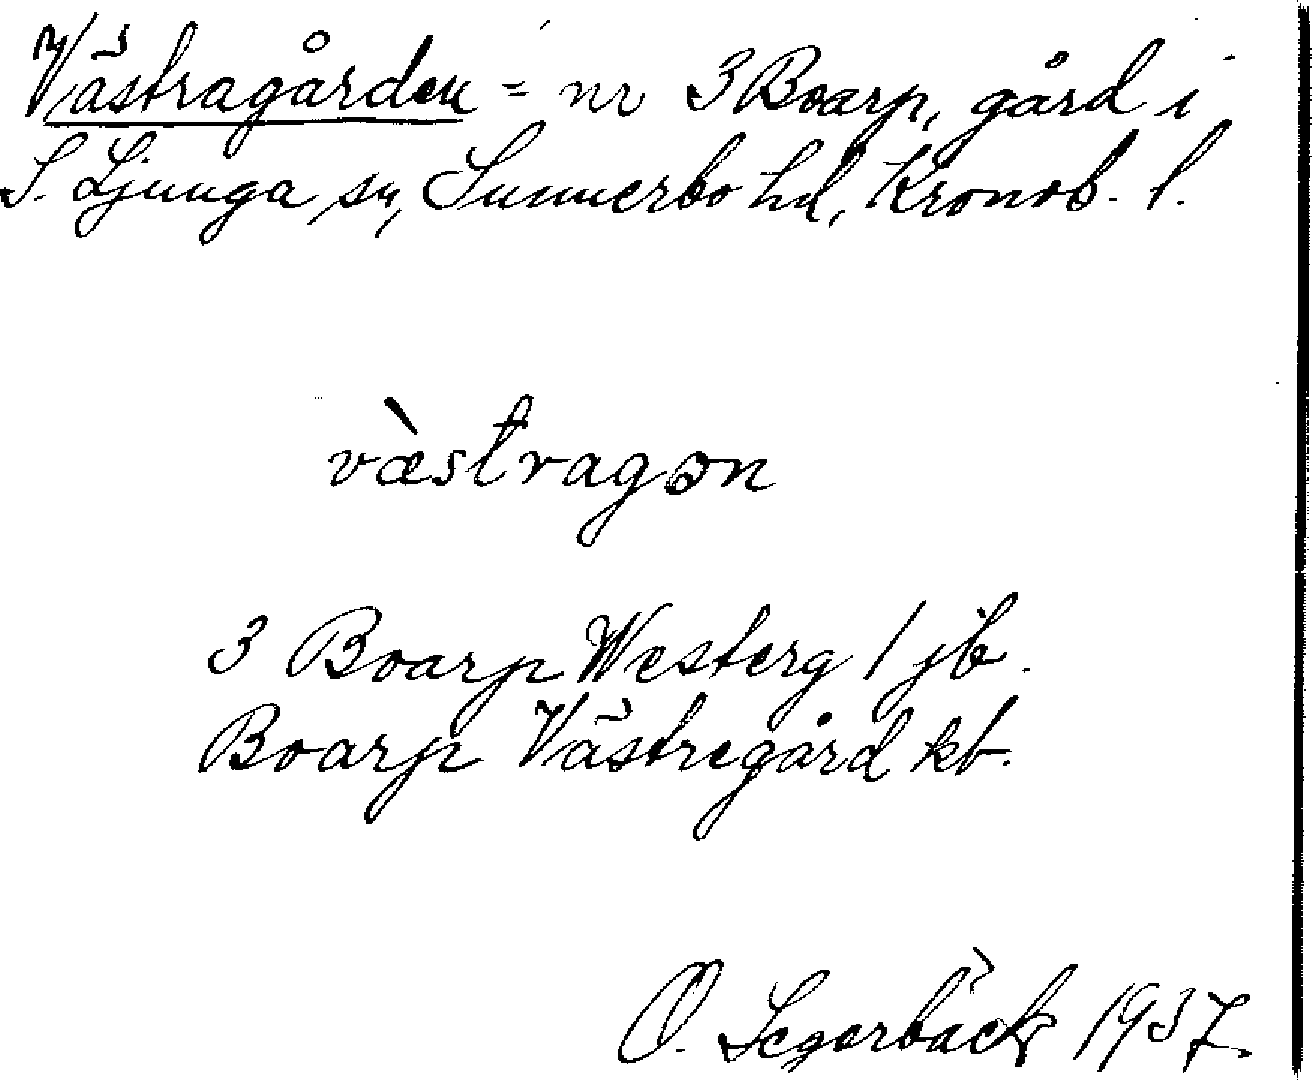 Västragården = nr 3 Boarp, gård i
S. Ljunga sn, Sunnerbo hd, Kronob. l.
væ̀stragɔn
3 Boarp Westerg 1 jb.
Boarp Västregård kb.
O. Segerbäck 1937.